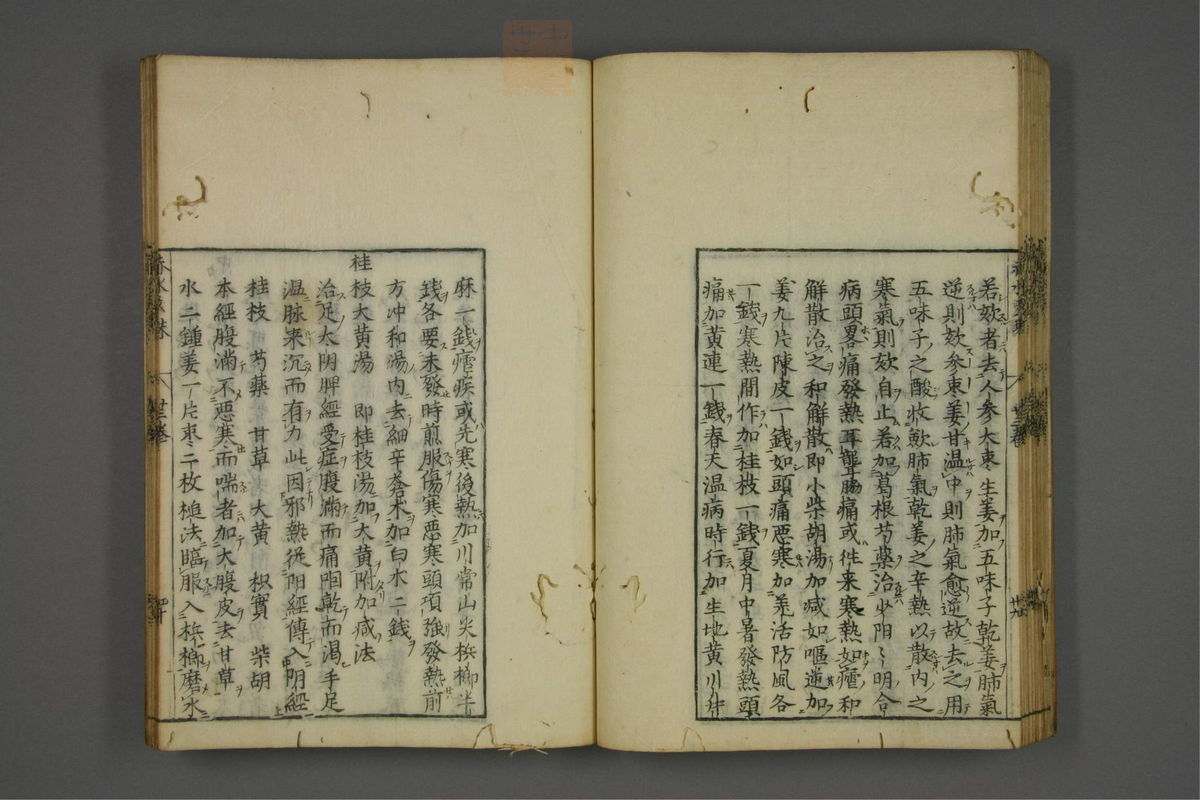 若欬者去人參大棗生姜加五味子乾姜肺氣
逆則欬參棗姜甘温中則肺氣愈逆故去之用
五味子之酸收歛肺氣乾姜之辛熱以散内之
寒氣則欬自止若加葛根芍藥治少阳〻明合
病頭畧痛發熱耳聾脇痛或徃来寒熱如瘧和
解散治之和解散即小柴胡湯加减如嘔逆加
姜九片陳皮一錢如頭痛悪寒加羌活防風各
一錢寒熱間作加桂枝一錢夏月中暑發熱頭
痛加黄連一錢春天温病時行加生地黄川芎
廿九
麻一錢瘧疾或先寒後熱加川常山尖梹榔半
錢各要未發時煎服傷寒悪寒頭項強發熱前
方冲和湯内去細辛蒼术加白术二錢
桂枝大黄湯 即桂枝湯加大黄附加减法
治足太阴脾經受症腹滿而痛咽乾而渴手足
温脉来沉而有力此因邪熱従阳經傳入阴經
桂枝 芍藥 甘草 大黄 枳實 柴胡
本經腹滿不悪寒而喘者加大腹皮去甘草
水二鍾姜一片棗二枚槌法臨服入梹榔磨水